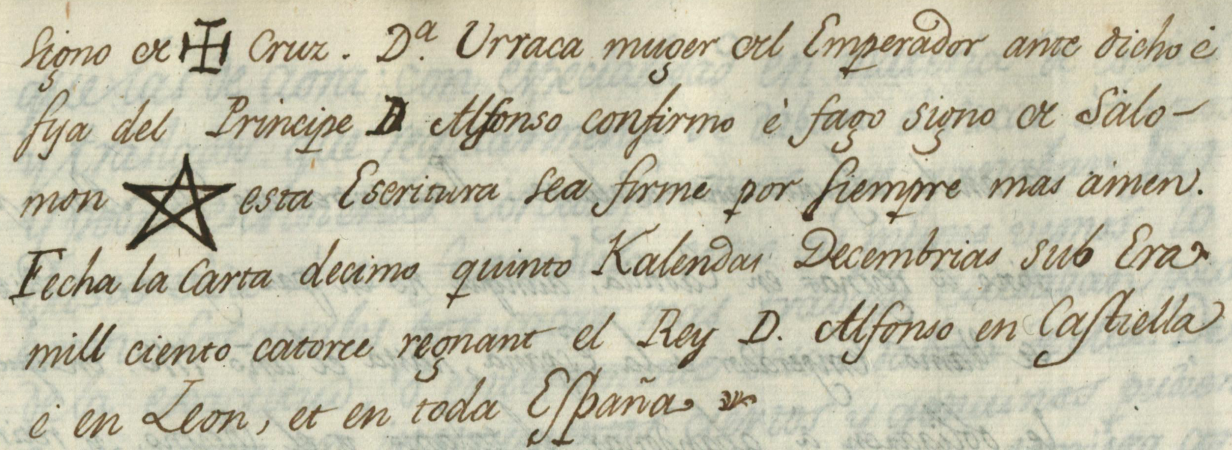 signo de ✠ Cruz. D.ª Urraca muger del Emperador ante dicho è
fija del Principe D Alfonso confirmo è fago signo de Salo-
mon ⛤ esta Escritura sea firme por siempre mas amen.
Fecha la Carta decimo quinto Kalendas Decembrias sub Era
mill ciento catorce regnant el Rey D. Alfonso en Castiella
e en Leon, et en toda España